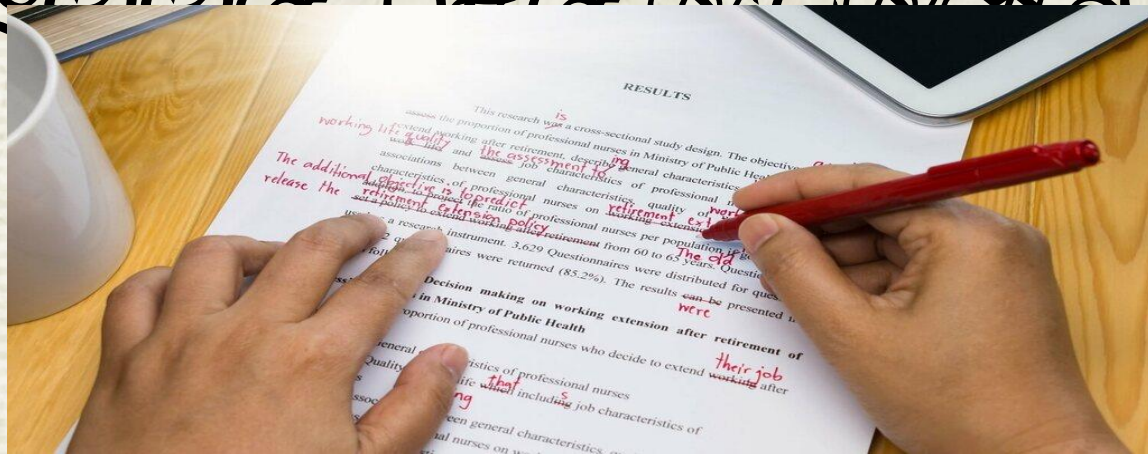 RESULTS
is
This research was a cross-sectional study design. The objective
the proportion of professional nurses in Ministry of Public Heal
working life quality
extend working after retirement, describe general characteristics
ing
and the assessment to job characteristics of professional
associations between general characteristics, quality of
The additional objective is to predict
characteristics of professional nurses on working extension
retirement ext
work
release the retirement extension policy
to project the ratio of professional nurses per population if
set a policy to extend working after retirement from 60 to 65 years. Questi
The old
a research instrument. 3.629 Questionnaires were distributed for ques
aires were returned (85.2%). The results can be presented
were
Decision making on working extension after retirement of
in Ministry of Public Health
oportion of professional nurses who decide to extend working after
their job
eneral istics of professional nurses
Quality ife which including job characteristics of
that
s
ng
een general characteristics,
al nurses on